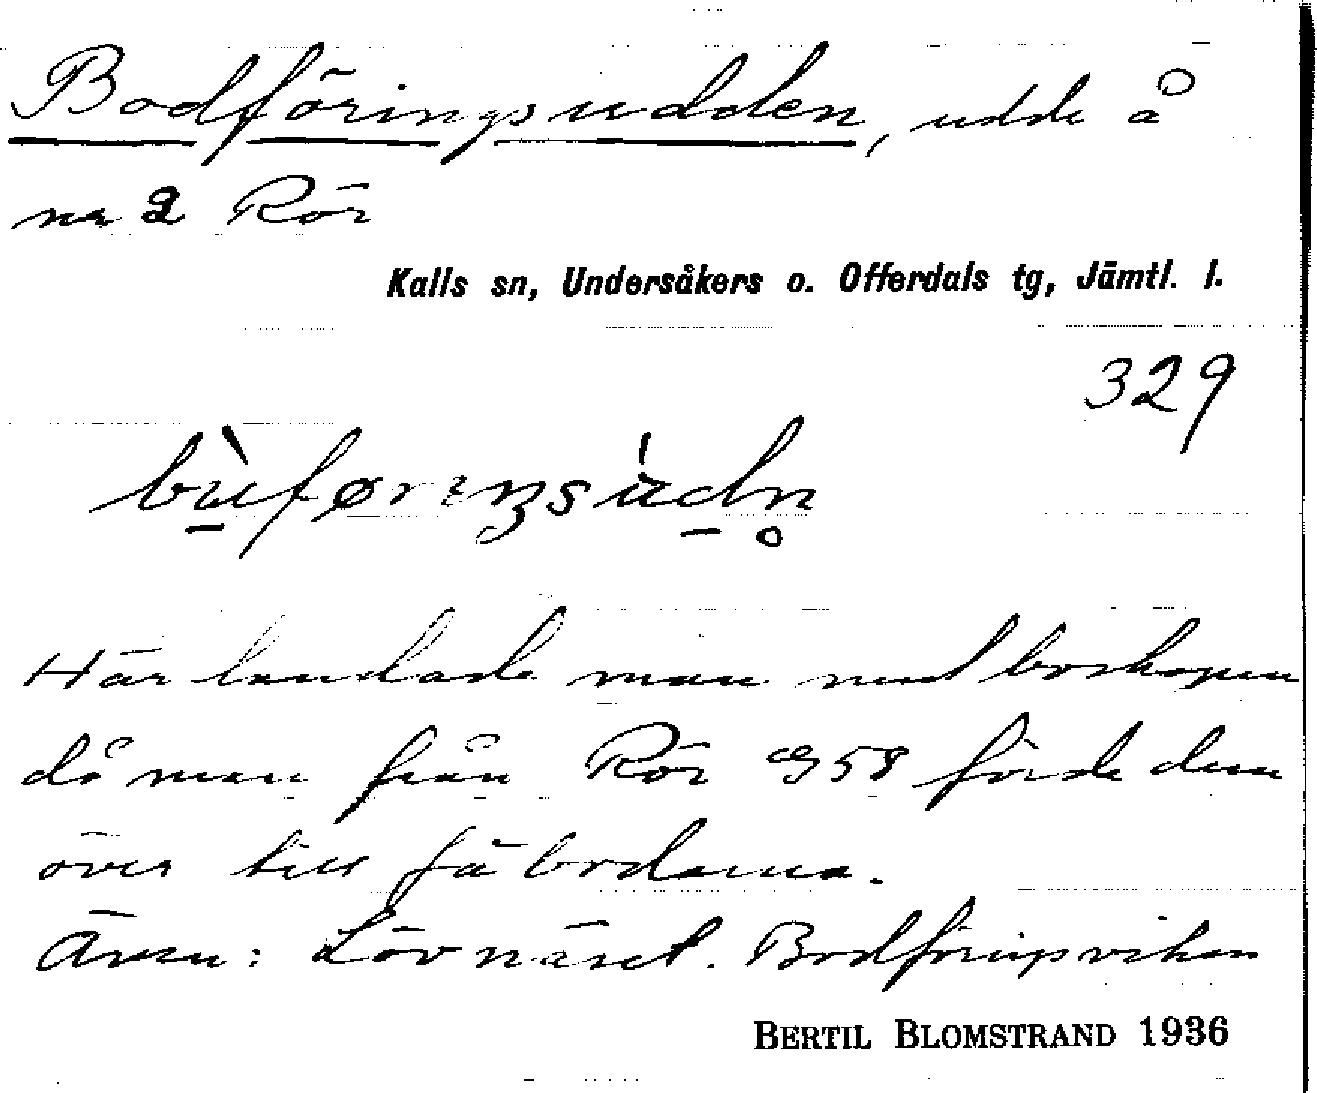 Bodföringsudden, udde å
nr 2 Rör
Kalls sn, Undersåkers o. Offerdals tg, Jämtl. l.
329
bùføreŋsùdn̥
Här landade man med boskapen
då man från Rör 958 förde dem
över till fäbodarna.
Även: Lövnäset. Bodföringsviken
BERTIL BLOMSTRAND 1936